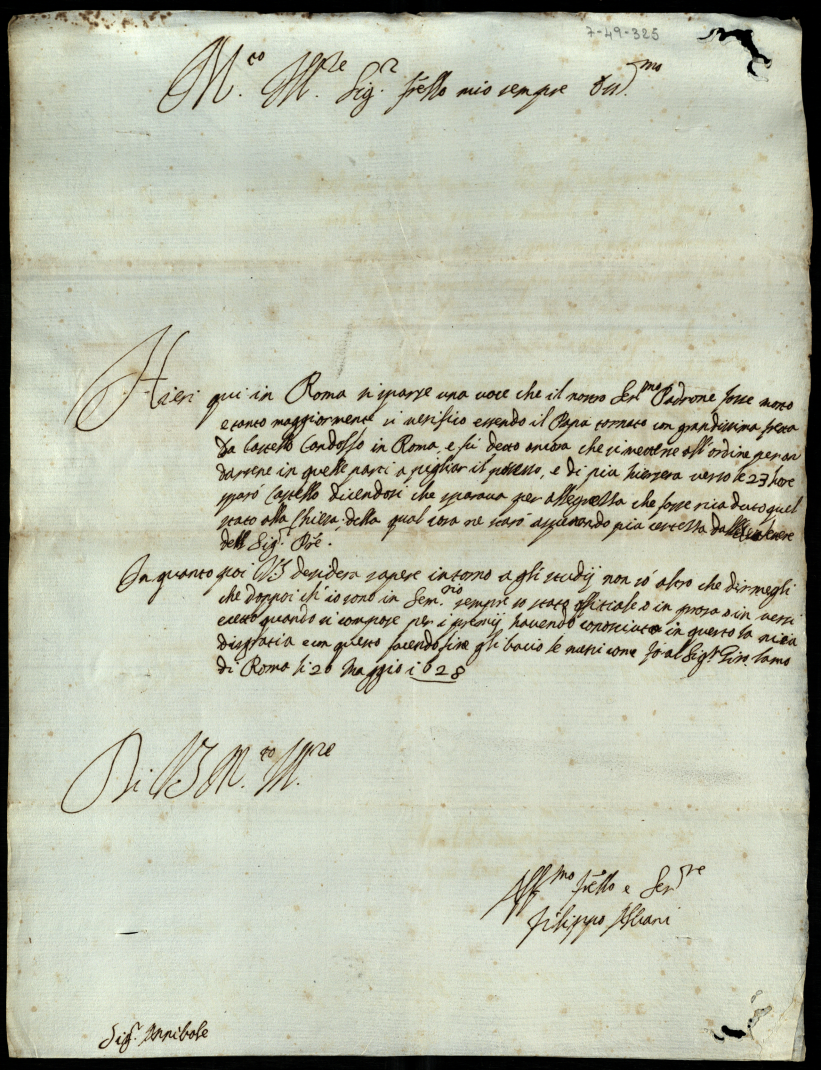 7-49-325
M.to Ill.re Sig.r fr̃ello mio sempre oss.mo
Hieri qui in Roma si sparse una voce che il nostro Ser.mo Padrone fosse morto
e tanto maggiormente si verificò essendo il Papa tornato con grandissima fretta
da Castello Gandolfo in Roma, e fù detto ancora che si mettesse all'ordine per an
darsene in quelle parti a pigliar il possesso, e di più hiersera verso le 23 hore
sparò Castello dicendosi che sparava per allegrezza che fosse ricaduto quel
stato alla Chiesa, della qual cosa ne starò aspettando più certezza dalle lettere
dell Sig.r Pr̃e.
In quanto poi VS desidera sapere intorno a gli studij non sò altro che dirmegli
che doppoi ch'io sono in Sem.rio sempre so stato offitiale o in prosa o in versi
eccetto quando si compose per i premij havendo conosciuto in questo la mia
disgratia e con questo facendo fine gli bacio le mani come fo al Sig.r
di Roma li 20 Maggio 1628
Di VS M.to Ill.re
Aff.mo fr̃ello e Ser.re
Filippo
Sig.r Annibale